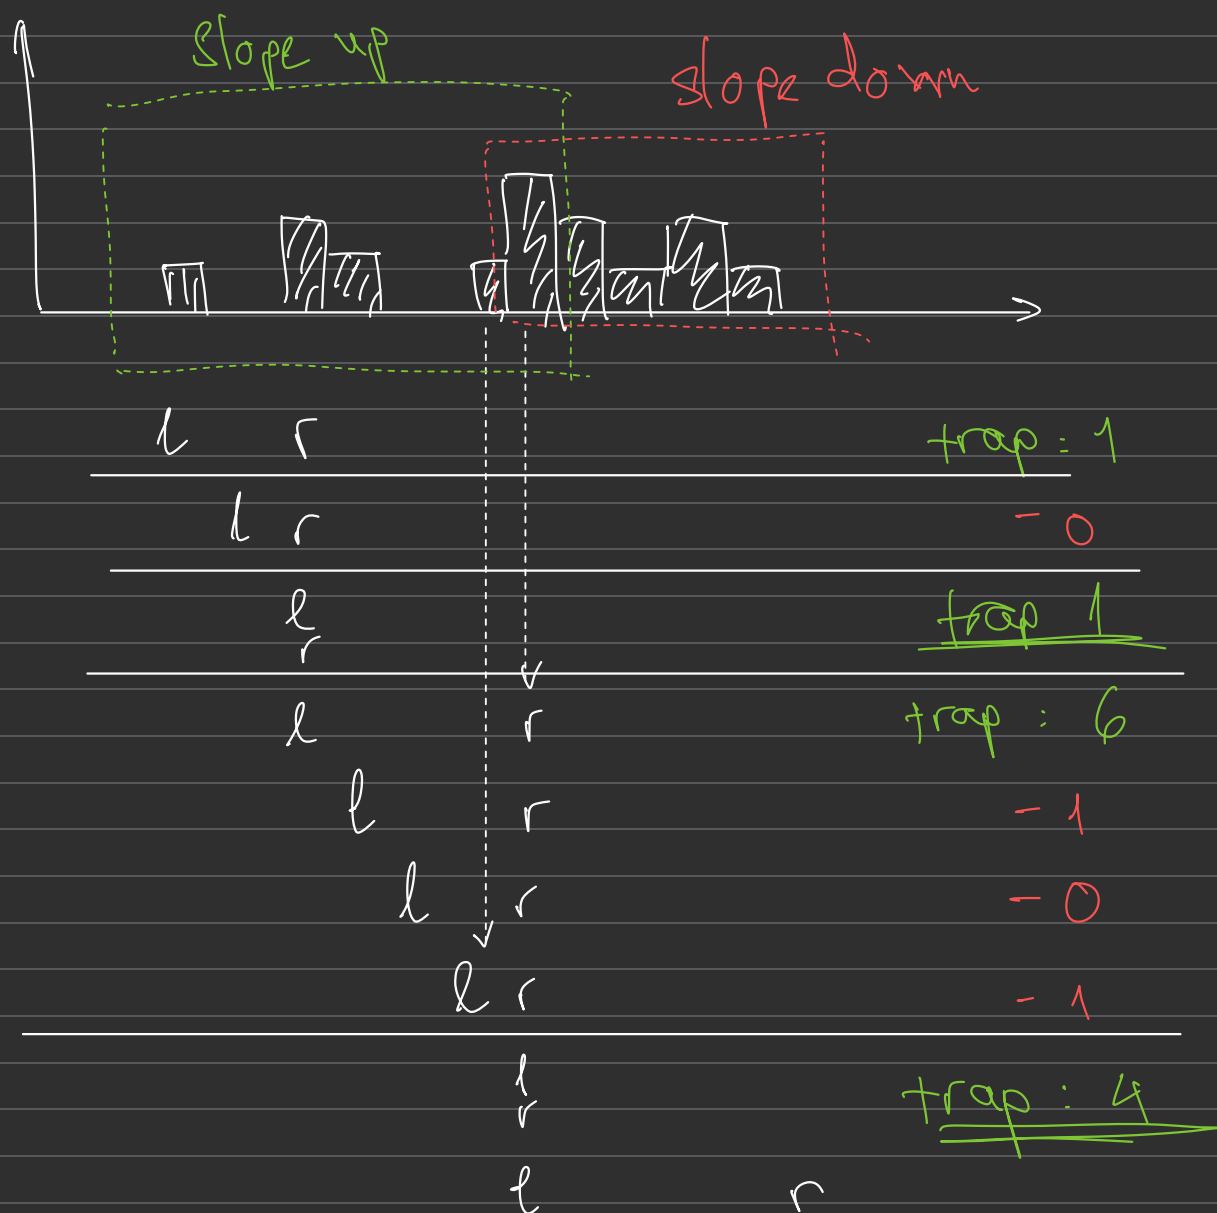 Slope up
slope down
l r trap: 1
l r - 0
l
r trap 1
l r trap: 6
l r - 1
l r - 0
l r - 1
l
r trap: 4
l r